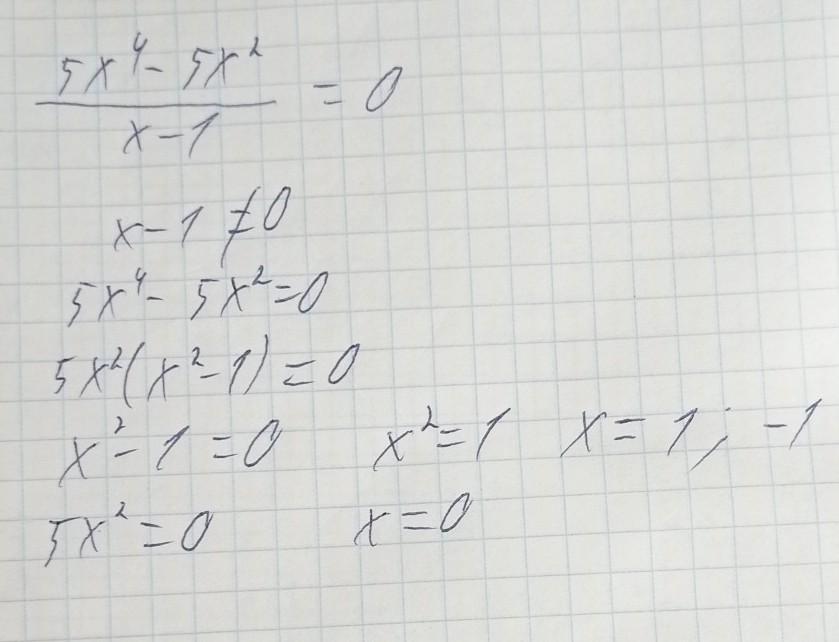 5x⁴ - 5x²
/ x - 1 = 0
x - 1 ≠ 0
5x⁴ - 5x² = 0
5x²(x² - 1) = 0
x² - 1 = 0 x² = 1 x = 1; -1
5x² = 0 x = 0